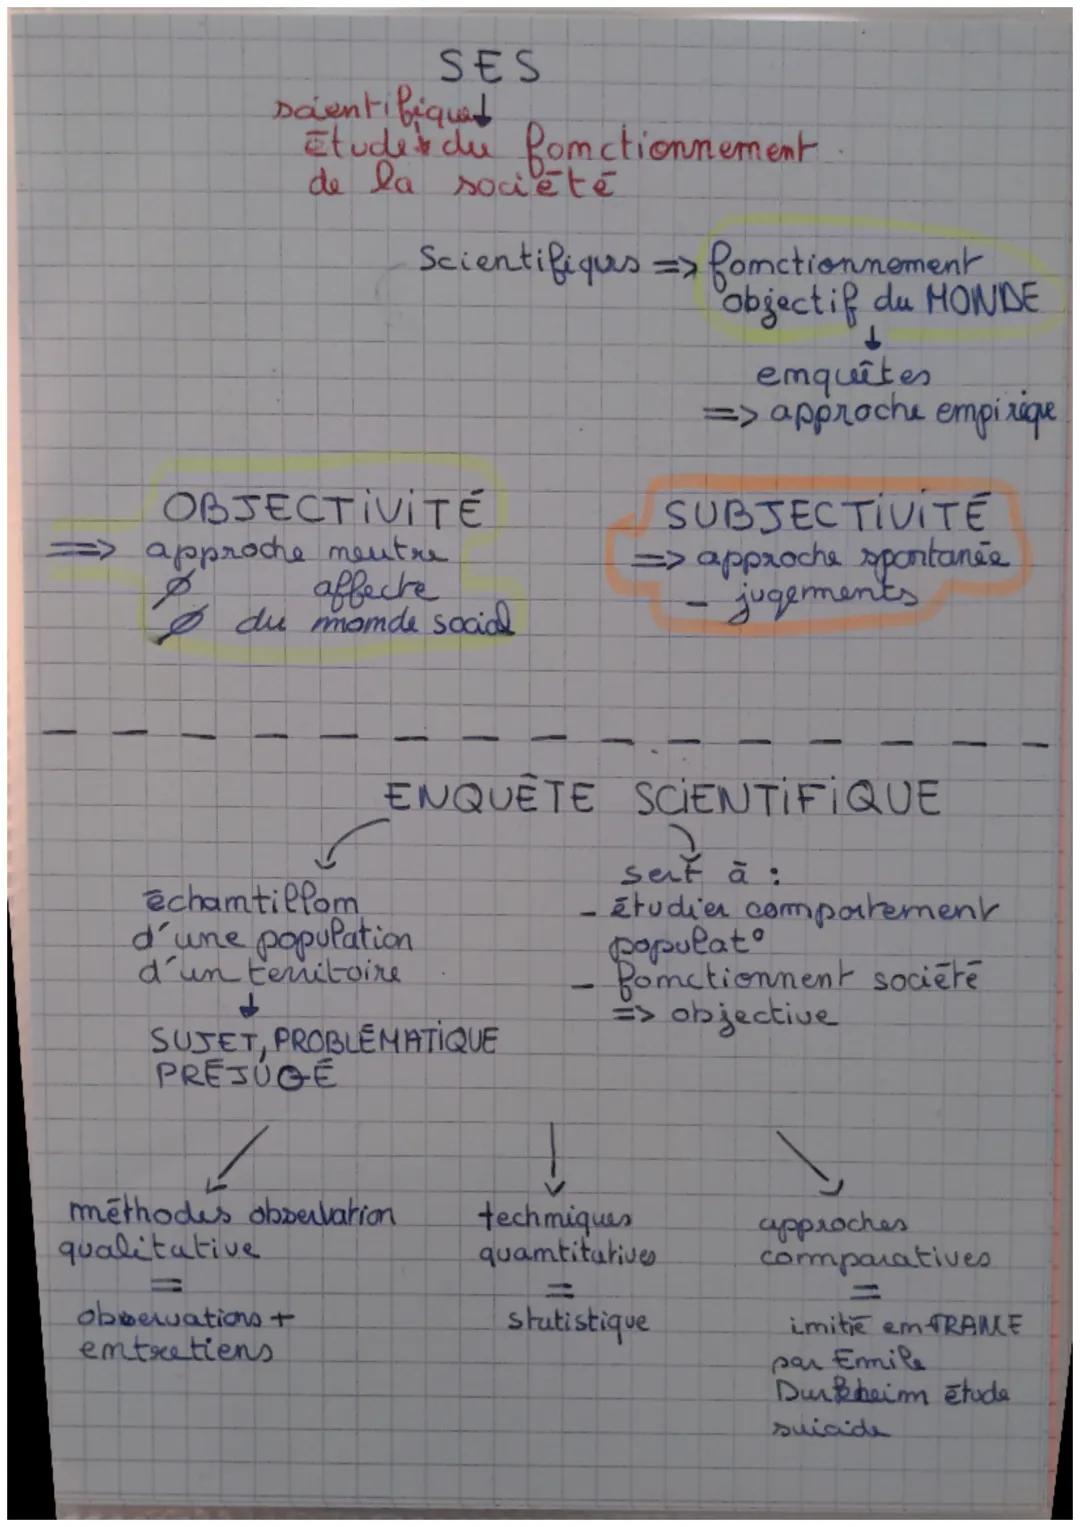 SES
scientifique↓
Étude du fonctionnement
de la société
Scientifiques => fonctionnement
objectif du MONDE
↓
enquêtes
=> approche empirique
OBJECTIVITÉ
=> approche neutre
Ø affecte
Ø du monde social
SUBJECTIVITÉ
=> approche spontanée
- jugements
ENQUÊTE SCIENTIFIQUE
échantillon
d'une population
d'un territoire
↓
SUJET, PROBLÉMATIQUE
PRÉJUGÉ
sert à :
- étudier comportement
populat°
- fonctionnent société
=> objective
méthodes observation
qualitative
=
observations +
entretiens
techniques
quantitatives
=
statistique
approches
comparatives
=
initié en FRANCE
par Emile
Durkheim étude
suicide